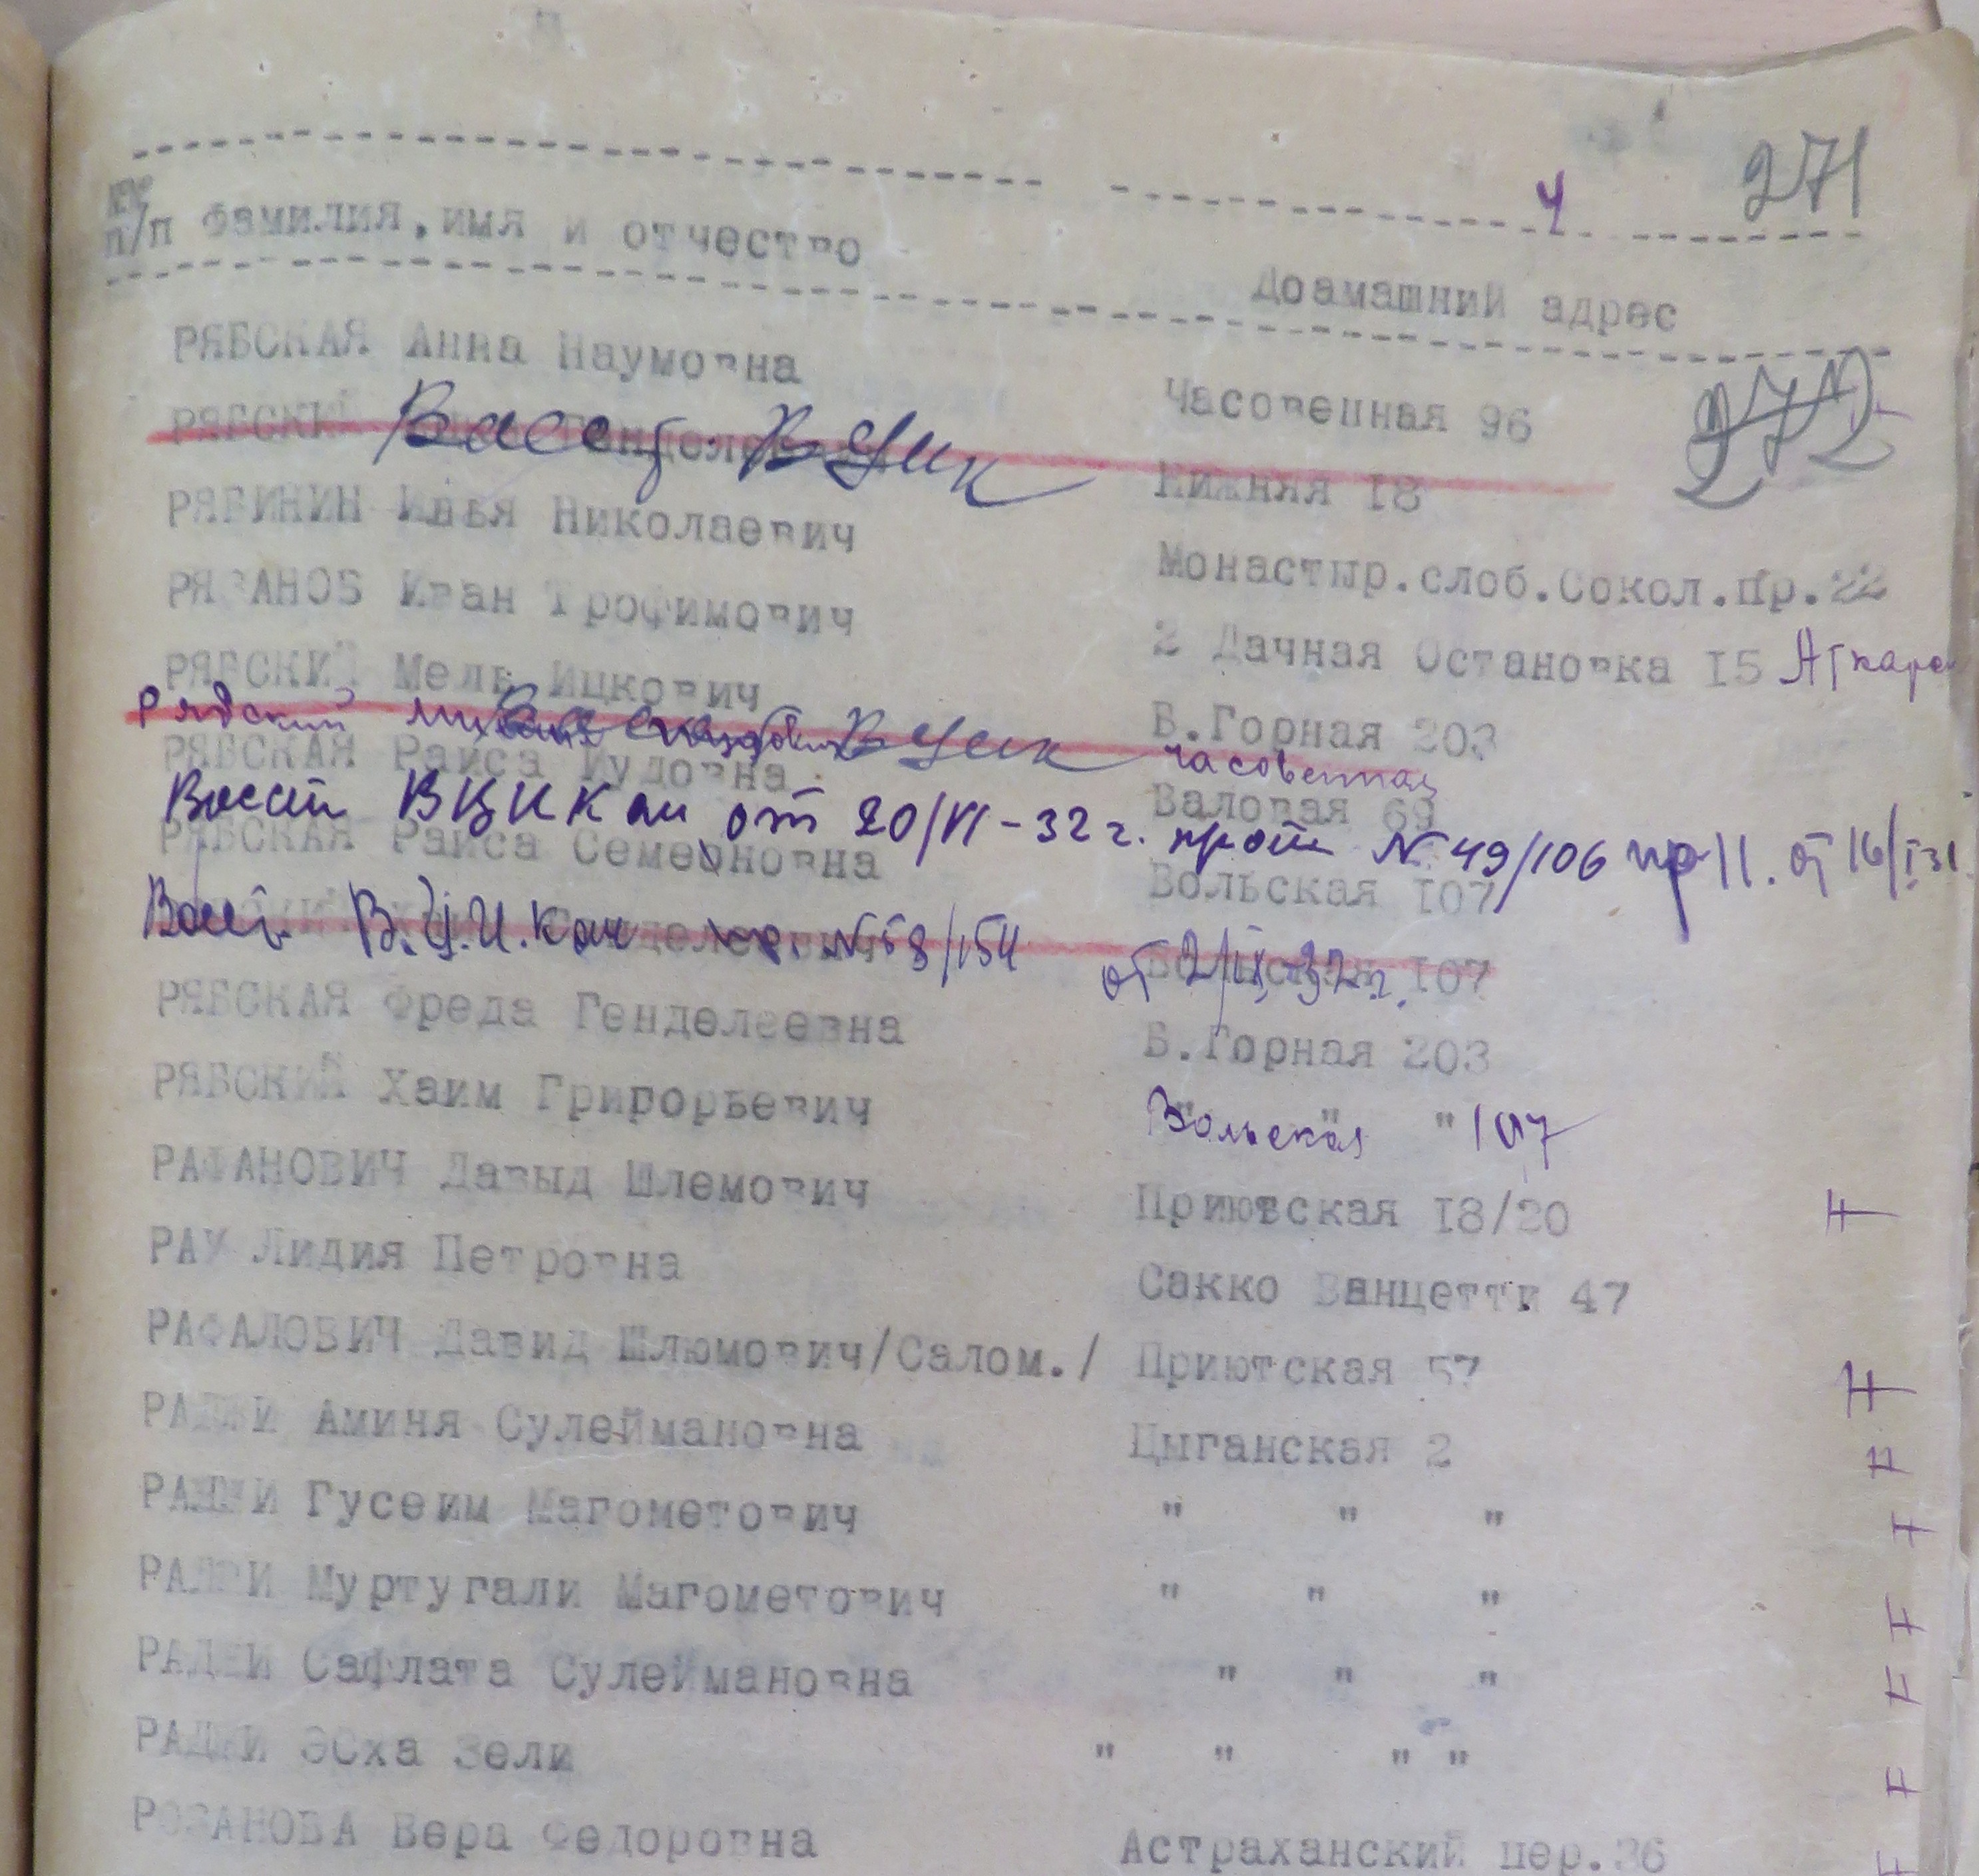 4 271
№№
п/п Фамилия, имя и отчество Доамашний адрес
РЯБСКАЯ Анна Наумовна Часовенная 96
272
РЯБСКИЙ Нижняя 18
Восст. ВЦИК
РЯБИНИН Илья Николаевич Монастыр.слоб.Сокол.пр.22
РЯЗАНОВ Иван Трофимович 2 Дачная Остановка 15
РЯБСКИЙ Мель Ицкович Б.Горная 203
Рябский ВЦИК Часовенная
РЯБСКАЯ Раиса Иудовна Валовая 69
Восст ВЦИКом от 20/VI-32 г. прот №49/106 пр 11. от 16/I 31
РЯБСКАЯ Раиса Семеоновна Вольская 107
Восст. В.Ц.И.Ком №58/154 от 2/IX-32 г.
Вольская 107
РЯБСКАЯ Фреда Генделеевна Б.Горная 203
РЯБСКИЙ Хаим Григорьевич " " "
Вольская 107
РАФАНОВИЧ Давыд Шлемович Приютская 18/20
РАУ Лидия Петровна Сакко Ванцетти 47
РАФАЛОВИЧ Давид Шлюмович/Салом./ Приютская 57
Аминя Сулеймановна Цыганская 2
Гусеим Магометович " " "
Муртугали Магометович " " "
Сафлата Сулеймановна " " "
Эсха Зели " " " "
РОЗАНОВА Вера Федоровна Астраханский пер.36